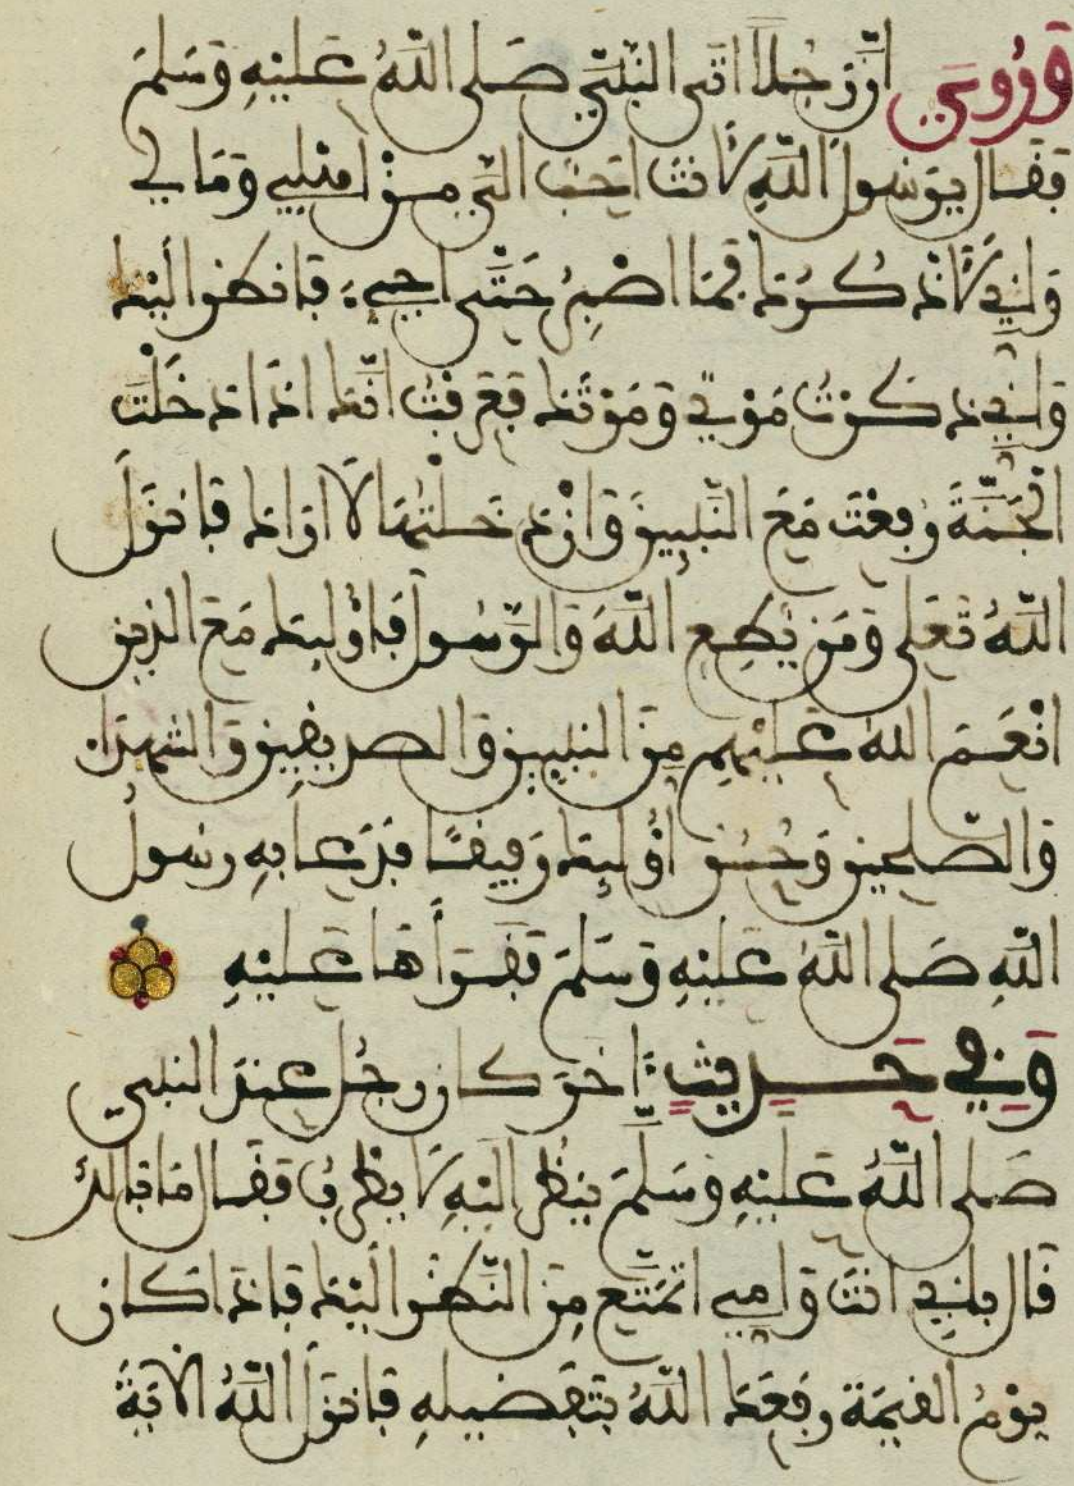 وروي أن رجلا اتى النبي صلى الله عليه وسلم
فقال يرسول الله لأنت احب الي من اهلي ومالي
وإني لأذكرك فما اصبر حتى اجيء فانظر اليك
وإني ذكرت موتي وموتك فعرفت انك اذا دخلت
الجنة رفعت مع النبيين وان دخلتها لا اراك فانزل
الله تعلى ومن يطع الله والرسول فاولئك مع الذين
انعم الله عليهم من النبيين والصديقين والشهداء
والصلحين وحسن اولئك رفيقا فدعا به رسول
الله صلى الله عليه وسلم فقرأها عليه
وفي حديث اخر كان رجل عند النبي
صلى الله عليه وسلم ينظر اليه لا يطرف فقال ما بالك
قال بابي انت وامي اتمتع من النظر اليك فاذا كان
يوم القيمة رفعك الله بتفضيله فانزل الله الاية